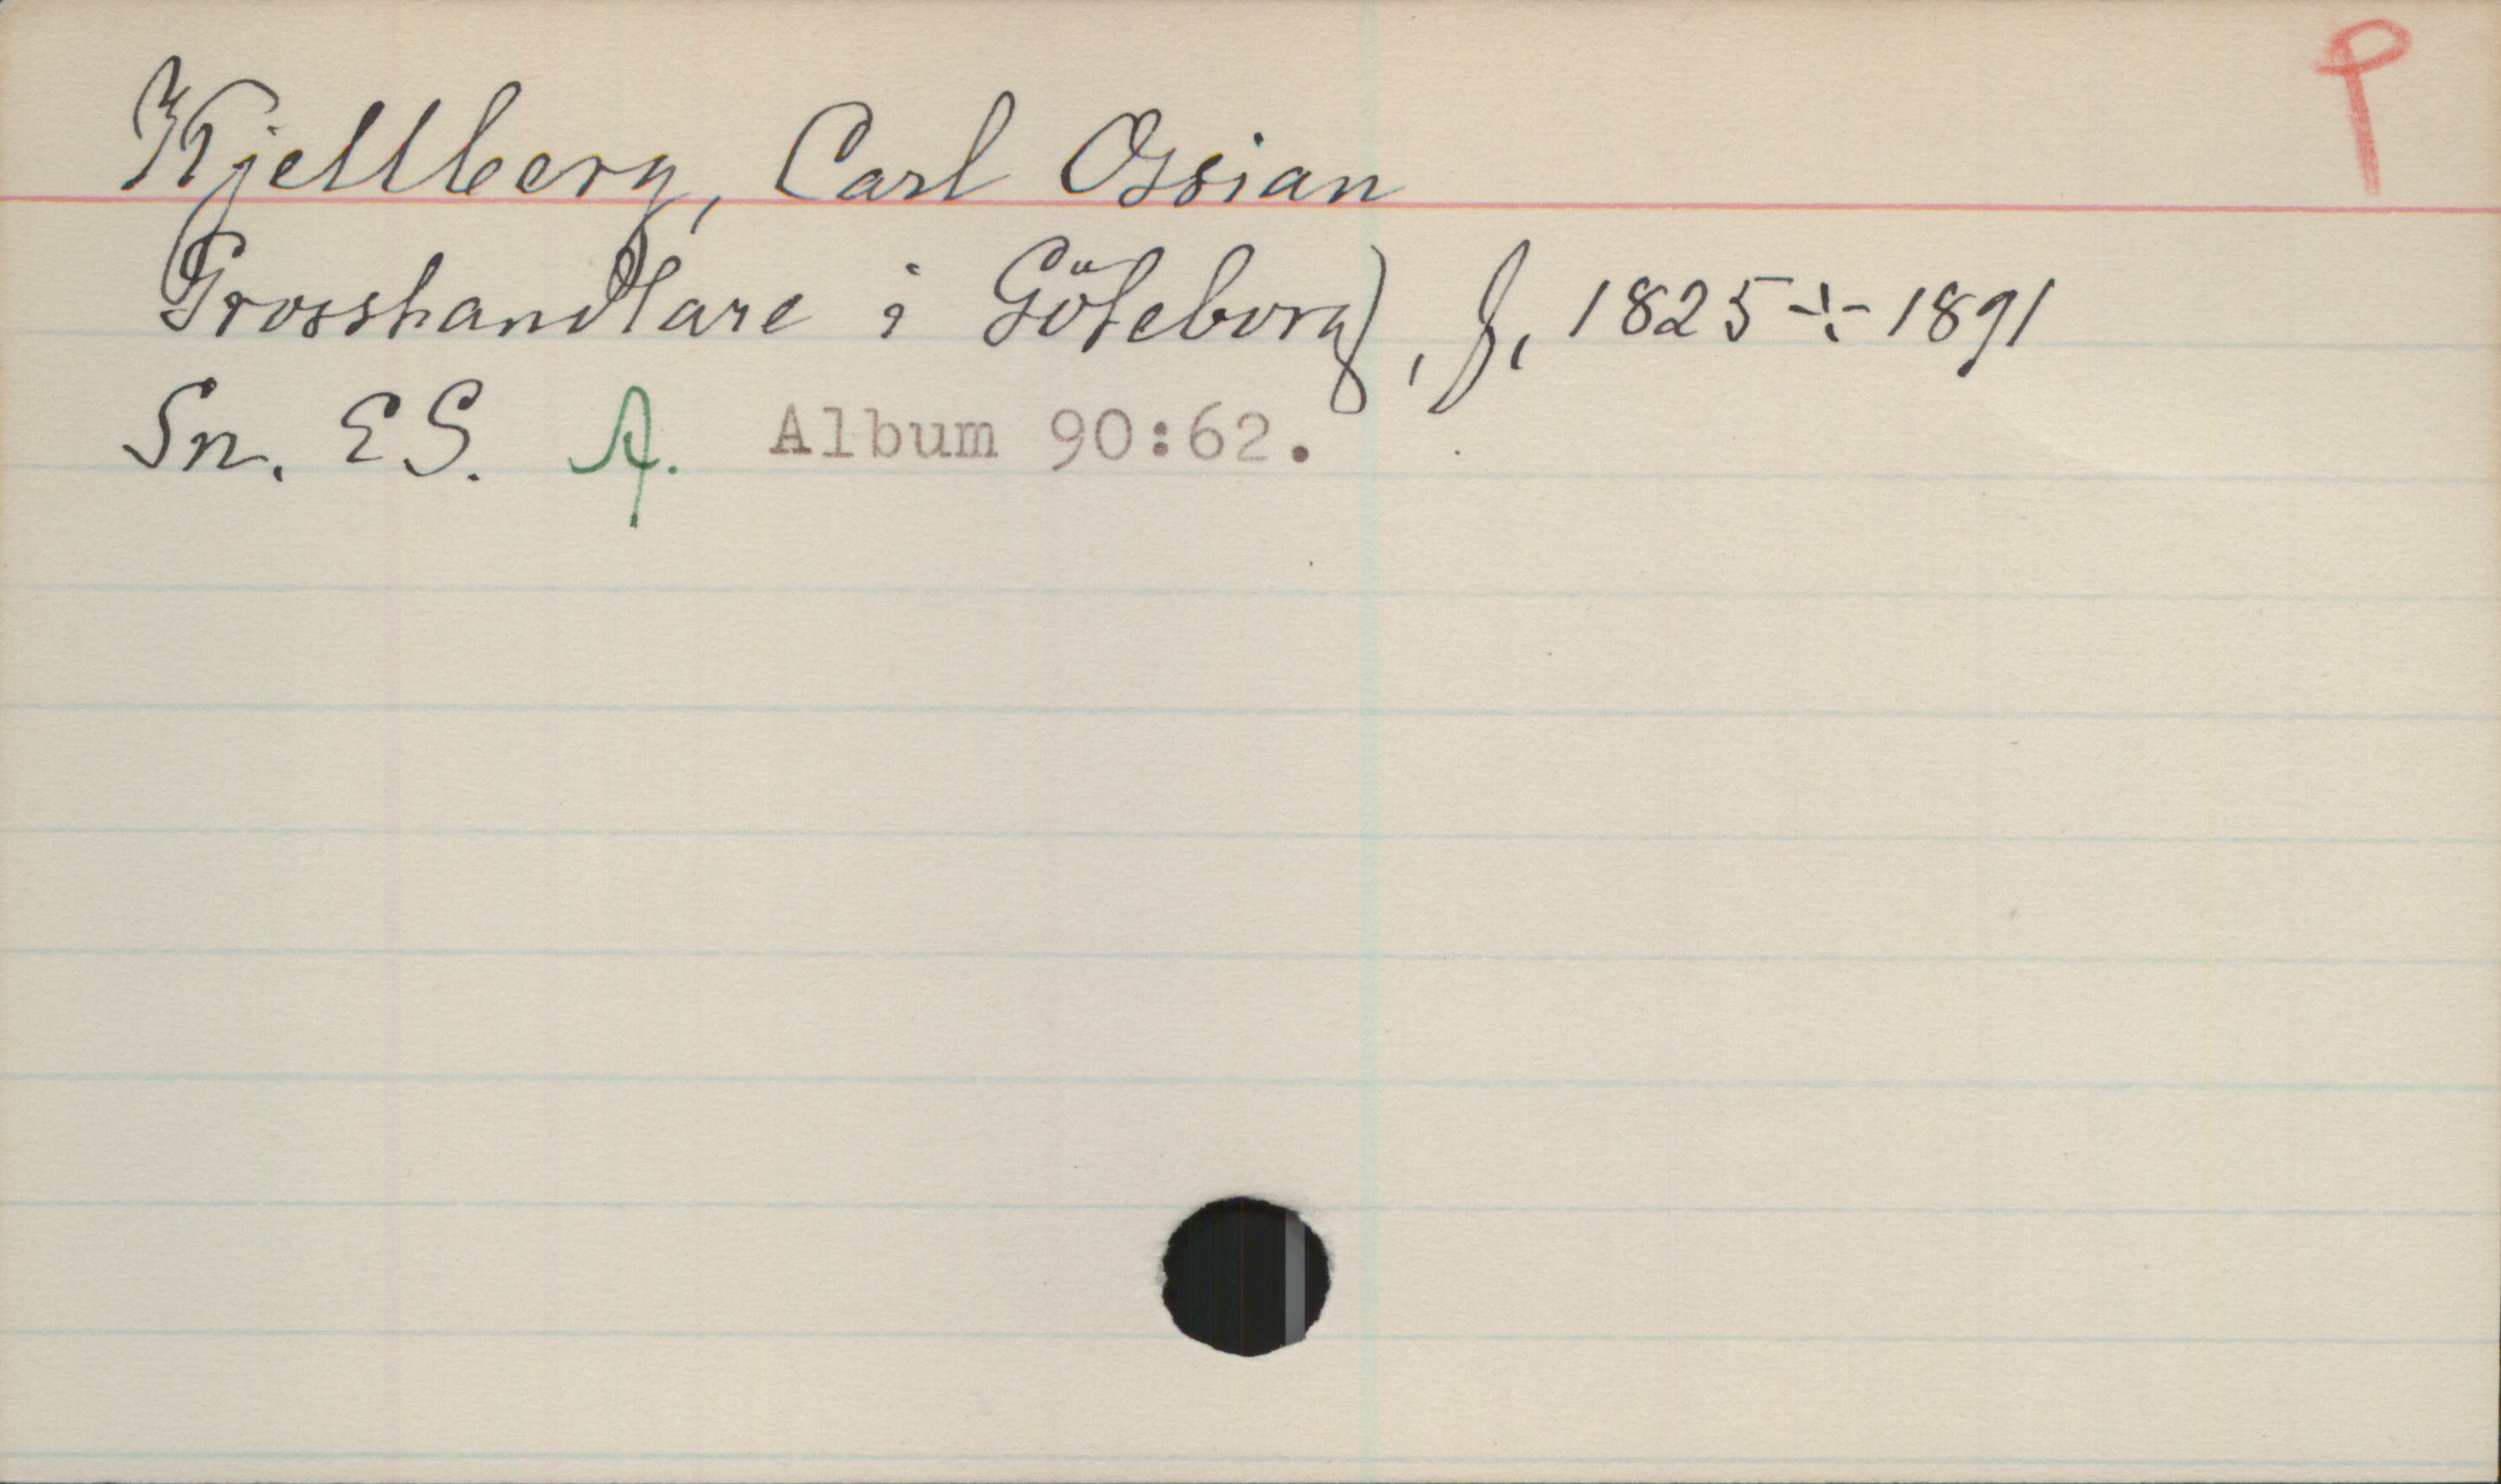 Kjellberg, Carl Ossian
Grosshandlare i Göteborg, f, 1825 ÷ 1891
Sn. ES. A. Album 90:62.